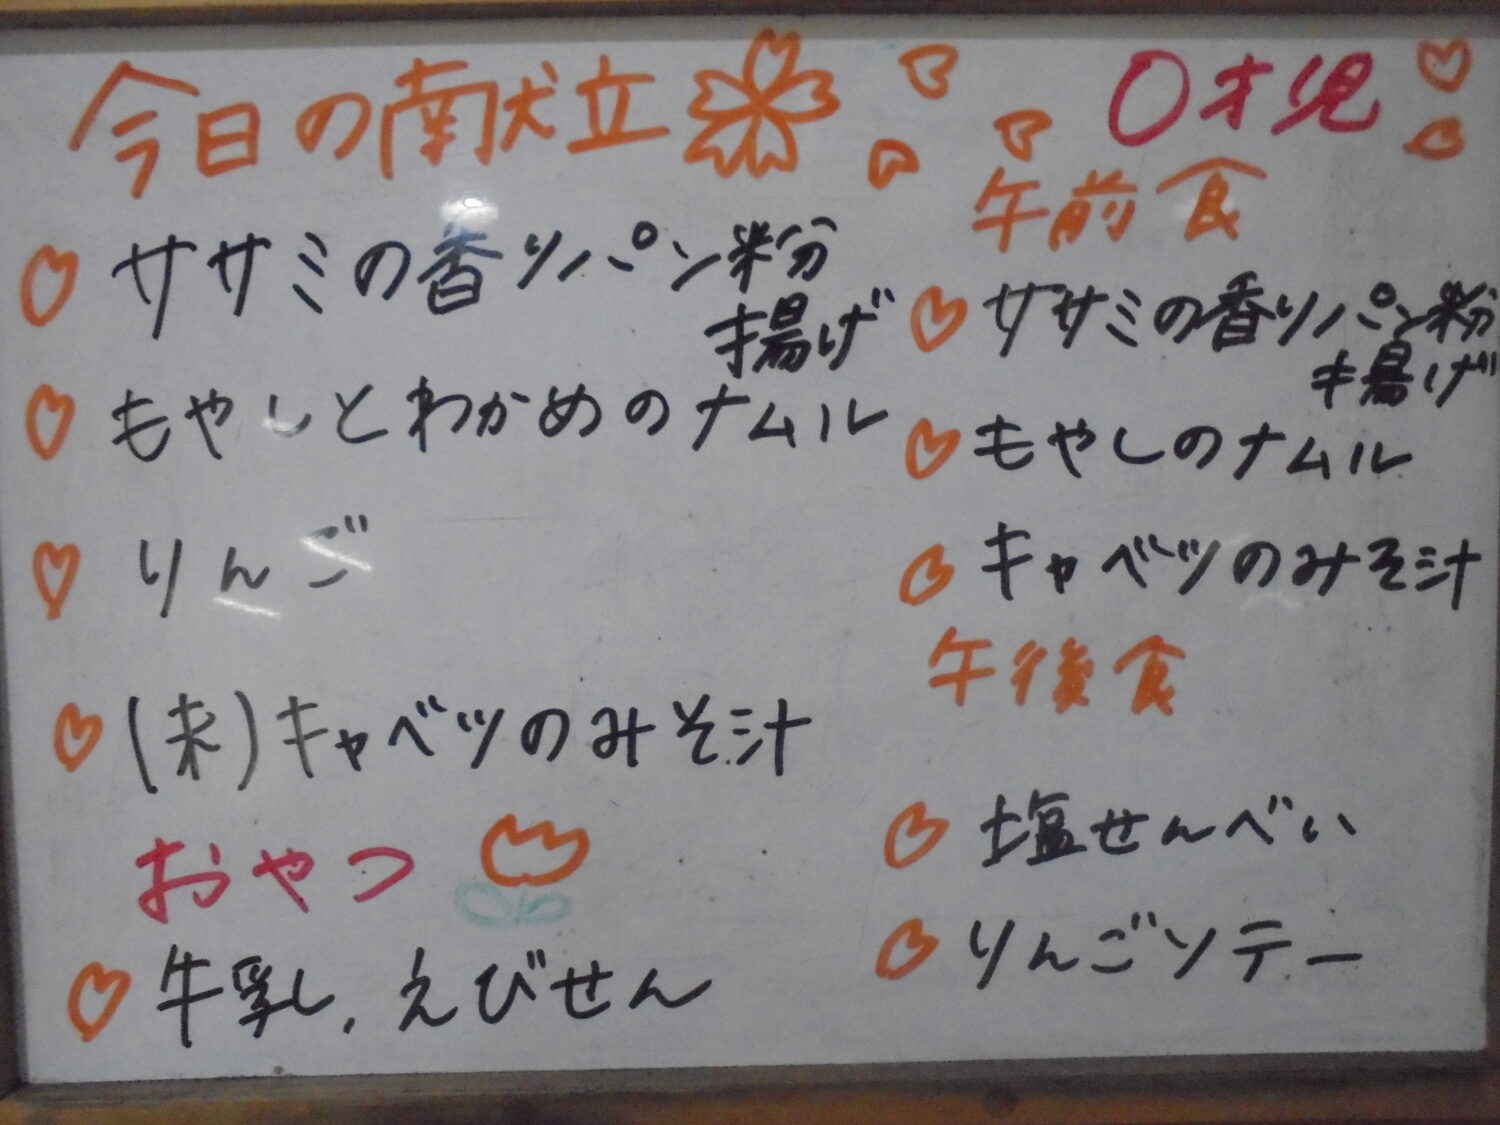 今日の献立
ササミの香りパン粉
揚げ
もやしとわかめのナムル
りんご
(未)キャベツのみそ汁
おやつ
牛乳、えびせん
0才児
午前食
ササミの香りパン粉
揚げ
もやしのナムル
キャベツのみそ汁
午後食
塩せんべい
りんごソテー